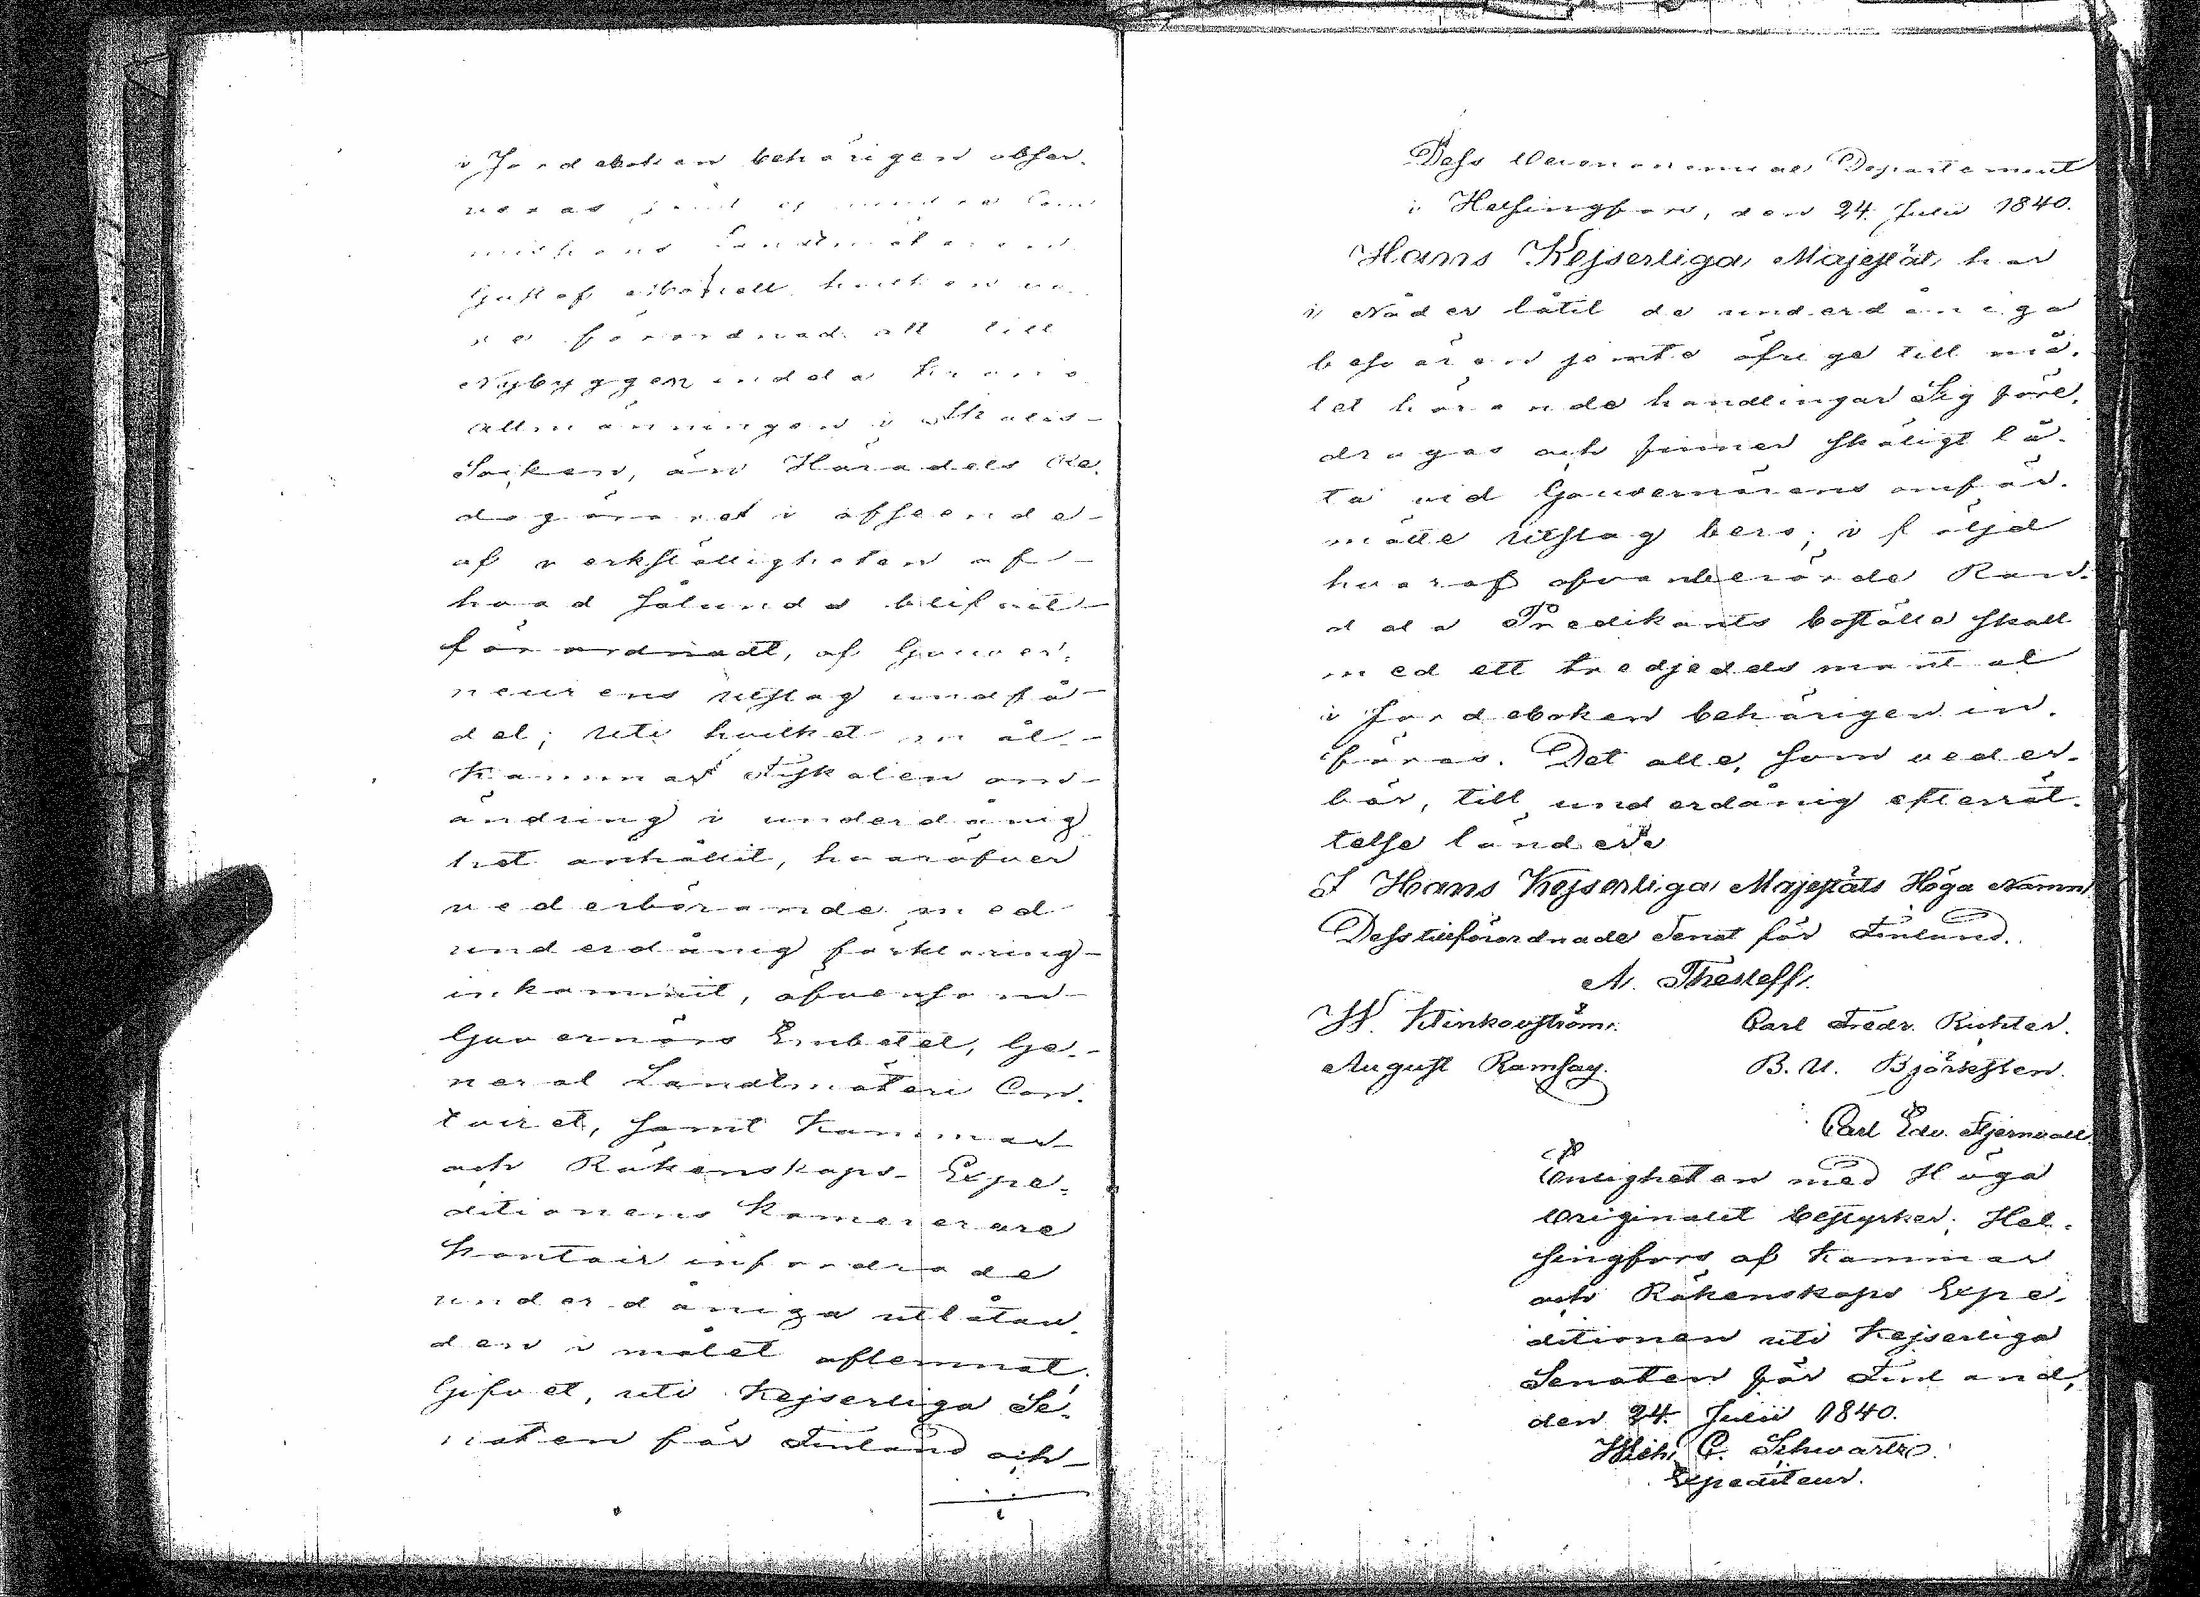 i Jordeboken behörigen obser-
veras samt
Landtmätaren
Gustaf
förordnad att till
Nybyggen indela Krono
Allmänningen i
Socken, än Häradets Re-
dogöraret i afseende
af verkställigheten af
hvad sålunda blifvit
förordnadt, af Gouver-
neurens utslag undfå
del; uti hvilket mål
Kammar Fiskalen om
ändring i underdånig
het anhållit, hvaröfver
vederbörande med
underdånig förklaring
inkommit, äfvensom
Guvernörs Embetet, Ge-
neral Landtmäteri Con-
toiret, samt Kammar
och Räkenskaps Expe-
ditionens Kamererare
Kontoir infordrade
underdåniga utlåtan-
den i målet aflemnat.
Gifvet, uti Kejserliga Se-
naten för Finland och
Dess Oeconomiae Departement
i Helsingfors, den 24. Julii 1840.
Hans Kejserliga Majestät har
i Nåder låtit de underdåniga
besvären jemte öfriga till må-
let hörande handlingar Sig före-
dragas och finner skäligt lå-
ta vid Gouvernörens omför-
mälte Utslag bero; i följd
hvaraf ofvanberörde Kan-
dala Predikants boställe skall
med ett tredjedels mantal
i Jordeboken behörigen in-
föras. Det alle, som veder-
bör, till underdånig efterrät-
telse länder.
I Hans Kejserliga Majestäts Höga Namn,
Dess tillförordnade Senat för Finland.
A. Thesleff.
W. Klinkowström. Carl Fredr. Richter.
August Ramsay. B. U. Björksten.
Carl Edv. Stjernvall
Enligheten med Höga
Originalet bestyrker; Hel-
singfors af Kammar
och Räkenskaps Expe-
ditionen uti Kejserliga
Senaten för Finland,
den 24. Julii 1840.
C. Schwartz.
Expediteur.